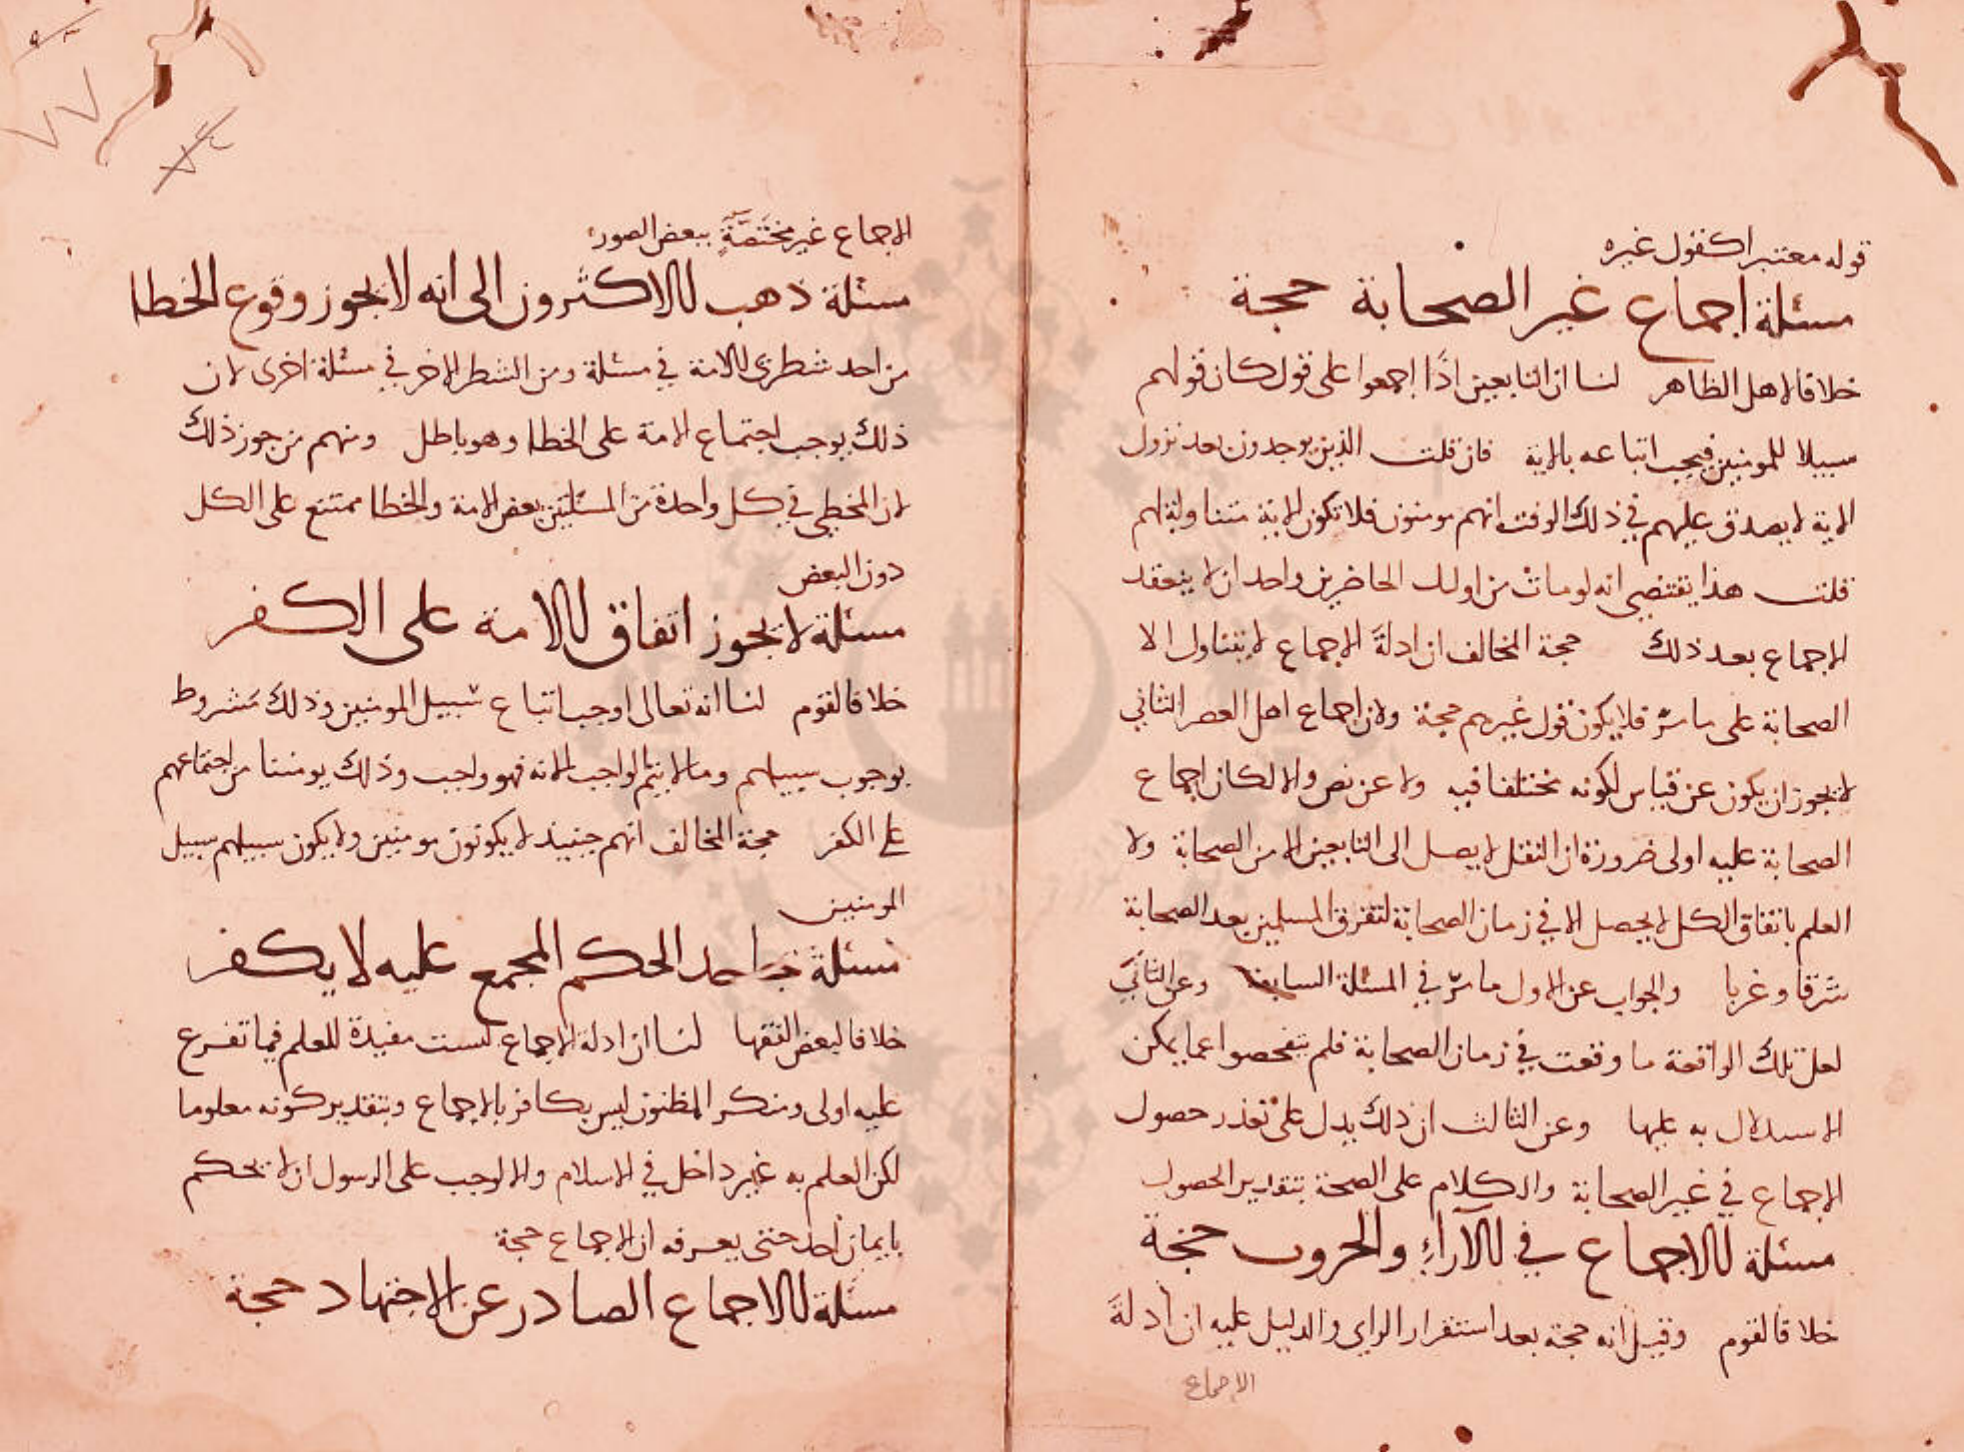 قوله معتبرا كقول غيره
مسئلة اجماع غير الصحابة حجة
خلافا لاهل الظاهر لنا ان التابعين اذا اجمعوا على قول كان قولهم
سبيلا للمومنين فيجب اتباعه بالاية فان قلت الذين يوجدون بعد نزول
الاية لا يصدق عليهم في ذلك الوقت انهم مومنون فلا تكون الاية متناولة لهم
قلت هذا يقتضي انه لو مات من اولك الحاضرين واحد ان لا ينعقد
الاجماع بعد ذلك حجة المخالف ان ادلة الاجماع لا يتناول الا
الصحابة على ما مرّ فلا يكون قول غيرهم حجة ولان اجماع اهل العصر الثاني
لا يجوز ان يكون عن قياس لكونه مختلفا فيه ولا عن نص والا لكان اجماع
الصحابة عليه اولى ضرورة ان النقل لا يصل الى التابعين الا من الصحابة ولا
العلم باتفاق الكل لا يحصل الا في زمان الصحابة لتفرق المسلمين بعد الصحابة
شرقا وغربا والجواب عن الاول ما مرّ في المسئلة السابقة وعن الثاني
لعل تلك الواقعة ما وقعت في زمان الصحابة فلم يتفحصوا عما يمكن
الاستدلال به عليها وعن الثالث ان ذلك يدل على تعذر حصول
الاجماع في غير الصحابة والكلام على الصحة بتقدير الحصول
مسئلة الاجماع في الآراء والحروب حجة
خلافا لقوم وقيل انه حجة بعد استقرار الراي والدليل عليه ان ادلة
الاجماع
الاجماع غير مختصّة ببعض الصور
مسئلة ذهب الاكثرون الى انه لا يجوز وقوع الخطا
من احد شطرى الامة في مسئلة ومن الشطر الاخر في مسئلة اخرى لان
ذلك يوجب اجتماع الامة على الخطا وهو باطل ومنهم من جوز ذلك
لان المخطي في كل واحدة من المسئلتين بعض الامة والخطا ممتنع على الكل
دون البعض
مسئلة لا يجوز اتفاق الامة على الكفر
خلافا لقوم لنا انه تعالى اوجب اتباع سبيل المومنين وذلك مشروط
بوجوب سبيلهم وما لا يتم الواجب الا به فهو واجب وذلك يومننا من اجتماعهم
على الكفر حجة المخالف انهم حينيذ لا يكونون مومنين ولا يكون سبيلهم سبيل
المومنين
مسئلة جاحد الحكم المجمع عليه لا يكفر
خلافا لبعض الفقها لنا ان ادلة الاجماع ليست مفيدة للعلم فما تفرع
عليه اولى ومنكر المظنون ليس بكافر بالاجماع وبتقدير كونه معلوما
لكن العلم به غير داخل في الاسلام والا لوجب على الرسول ان لا يحكم
بايمان احد حتى يعرفه ان الاجماع حجة
مسئلة الاجماع الصادر عن الاجتهاد حجة